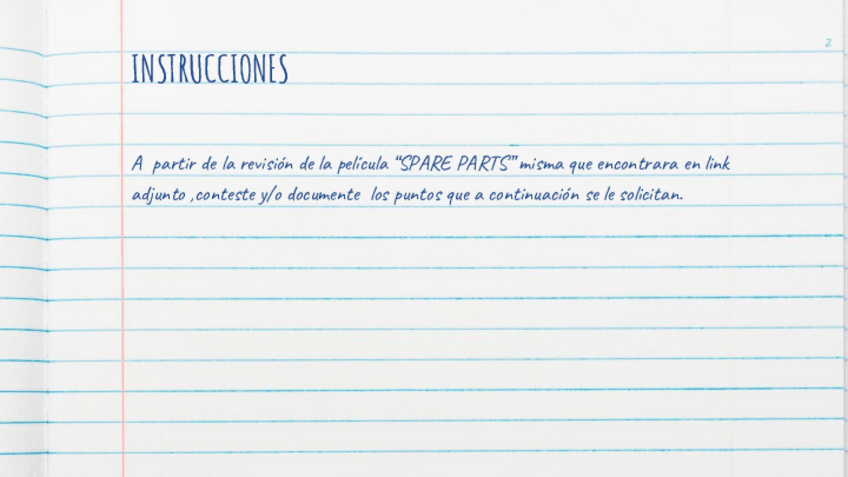 2
INSTRUCCIONES
A partir de la revisión de la película “SPARE PARTS” misma que encontrara en link
adjunto ,conteste y/o documente los puntos que a continuación se le solicitan.